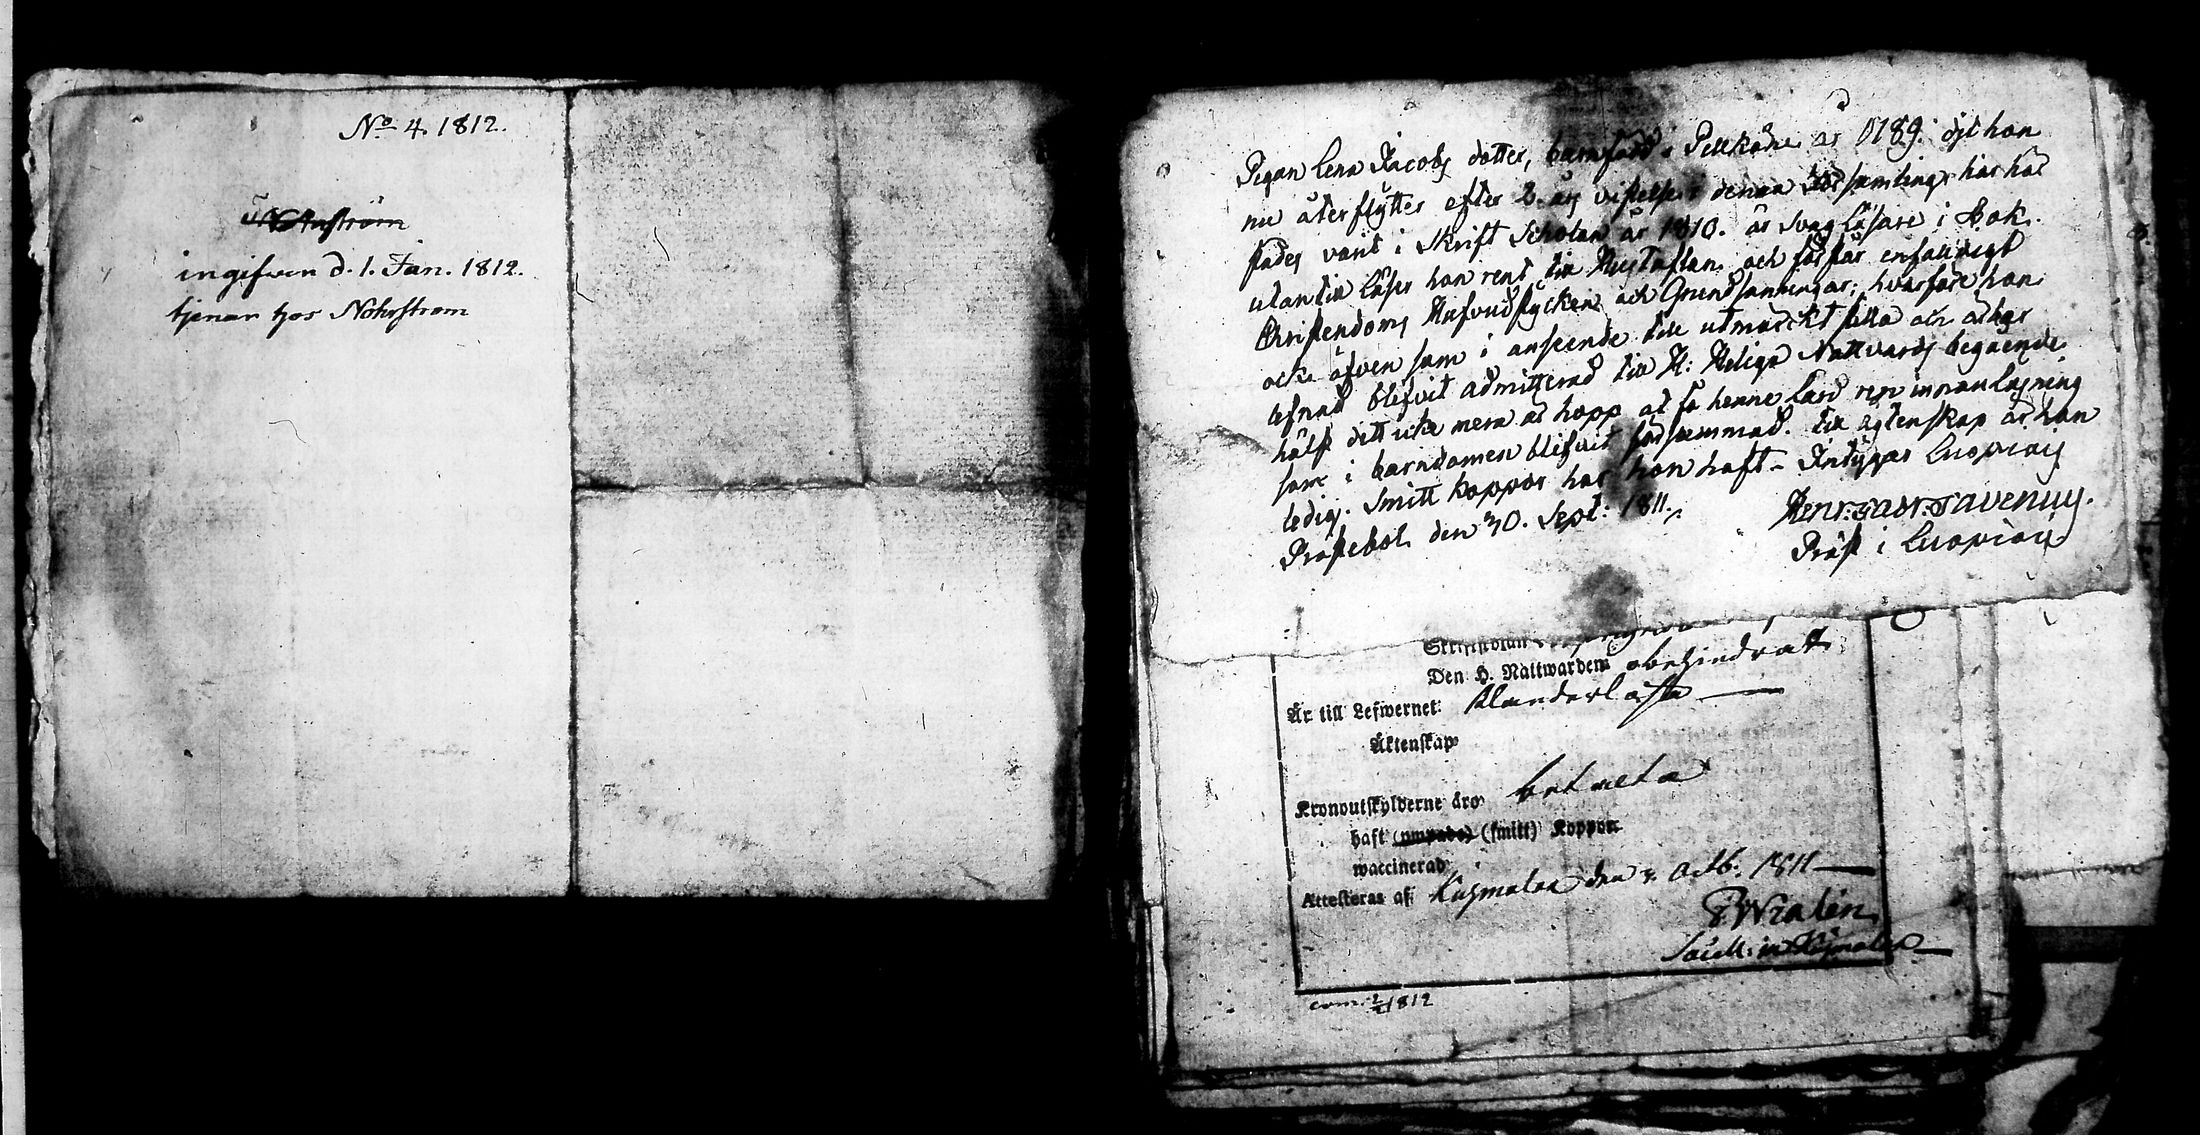 No 4. 1812.
ingifven d. 1. Jan. 1812.
tjenar hos Nohrström
Pigan Lena Jacobs dotter, barnfödd i Pelkäne år 1789. dit hon
nu återflytter efter 2. års vistelse i denna församling, har här
städes varit i Skrift Scholan år 1810. är svag läsare i Bok.
utantill läser hon rent till Hustaflan, och förstår enfaldigt
Christendoms Hufvudstycken och Grundsanningar; hvarföre hon
ock äfven som i anseende till utmärckt stilla och
lefnad blifvit admitterad till H: Heliga Nattvards begående
hälst det icke mera är hopp at få henne lärd ren innanläsning
som i barndomen blifvit försummad. till ägtenskap är hon
ledig. Smitt koppor har hon haft - Intygar Luopiois
Prästebol den 30. Sept: 1811.
Henr: Gabr: Tavenius.
Präst i Luopiois
Skriftskolan
Den H. Nattwarden obehindrat
Är till Lefwernet: Klanderlösa
Äktenskap
Kronoutskylderne äro betalta
haft (ympade) (smitt) Koppor
waccinerad
Attesteras af: Kuhmalax den Octb. 1811
Sacell: in Kuhmalax
1812